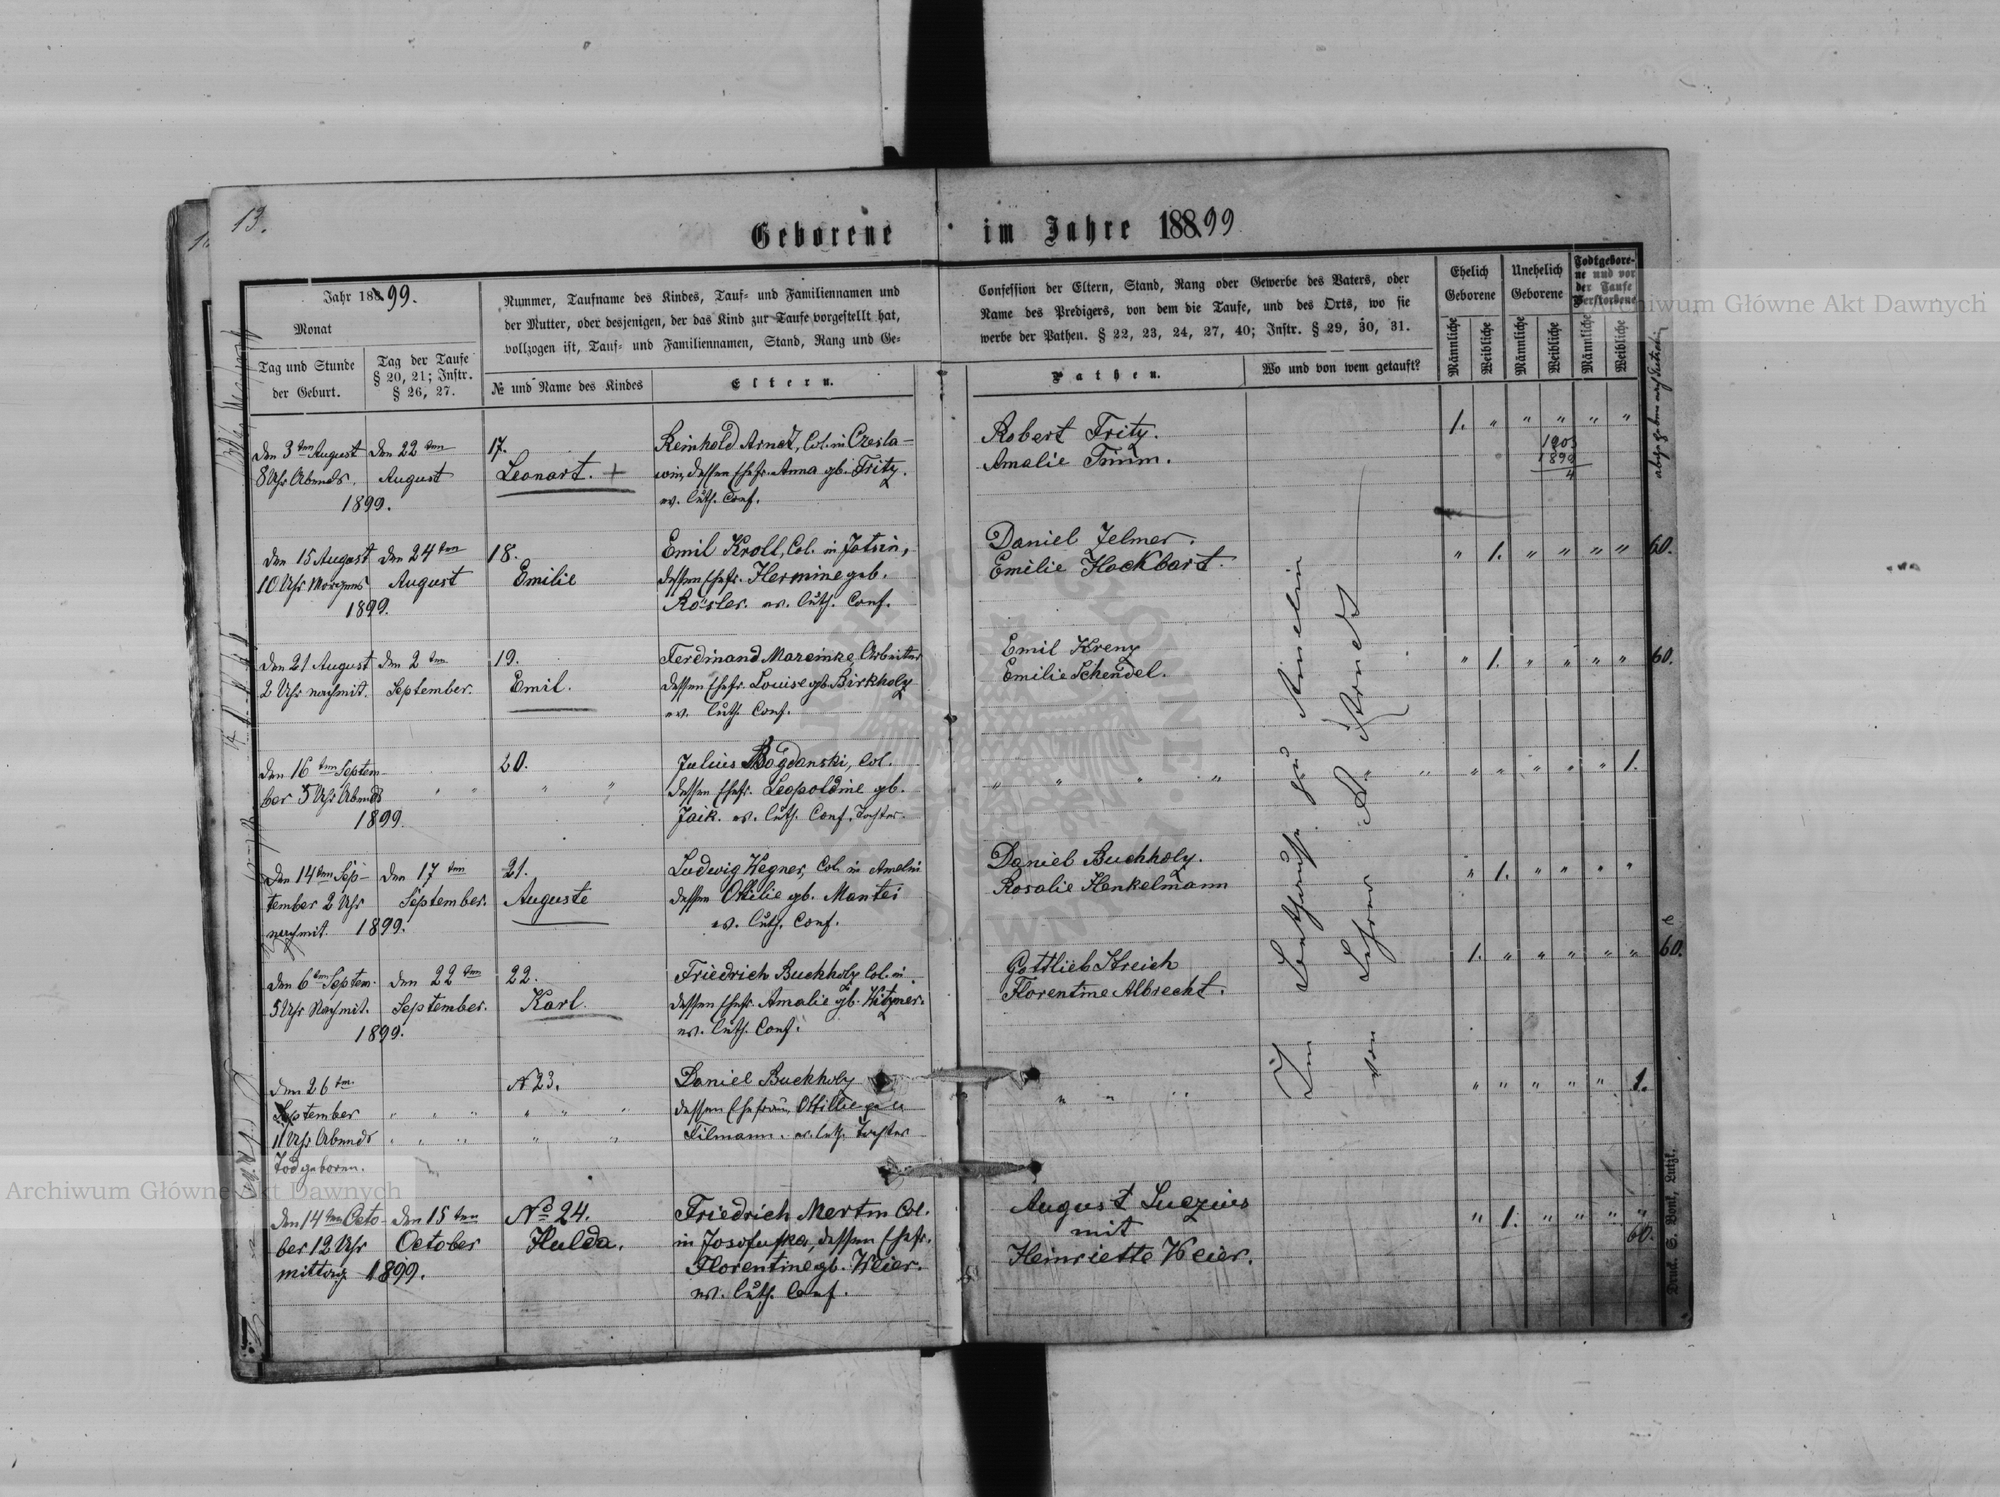 13.
Geborene im Jahre 188.99
Jahr 188.99.
Monat
Tag und Stunde
der Geburt.
Tag der Taufe
§ 20, 21; Instr.
§ 26, 27.
Nummer, Taufname des Kindes, Tauf- und Familiennamen und
der Mutter, oder desjenigen, der das Kind zur Taufe vorgestellt hat,
vollzogen ist, Tauf- und Familiennamen, Stand, Rang und Ge-
№ und Name des Kindes
Eltern.
Confession der Eltern, Stand, Rang oder Gewerbe des Vaters, oder
Name des Predigers, von dem die Taufe, und des Orts, wo sie
werbe der Pathen. § 22, 23, 24, 27, 40; Instr. § 29, 30, 31.
Pathen.
Wo und von wem getauft?
Ehelich
Geborene
Unehelich
Geborene
Todtgebore-
ne und vor
der Taufe
Verstorbene
Männliche
Weibliche
Männliche
Weibliche
Männliche
Weibliche
Den 3 ten August
8 Uhr Abends.
Den 22 ten
August
1899.
17.
Leonart. +
Reinhold Arndt, Col. in Czesla-
win, dessen Ehefr. Anna gb. Fritz.
ev. luth. Conf.
Robert Fritz.
Amalie Timm.
1. " " " " "
1903
1899
4
Den 15 August
10 Uhr Morgens
Den 24 ten
August
1899.
18.
Emilie
Emil Kroll, Col. in
dessen Ehefr. Hermine geb.
Rösler. ev. luth. Conf.
Daniel Jelmer.
Emilie Hackbart.
" 1. " " " " 60.
Den 21 August
2 Uhr nachmit.
Den 2 ten
September.
19.
Emil.
Ferdinand Mareinke Arbeiter
dessen Ehefr. Louise gb. Birkholz
ev. luth. Conf.
Emil Krenz
Emilie Schendel.
" 1. " " " " 60.
Den 16 ten Septem-
ber 5 Uhr Abends
1899.
20.
Julius Bogdanski, Col.
dessen Ehefr. Leopoldine gb.
Jaik. ev. luth. Conf. Tochter.
" " " " " 1.
Den 14 ten Sep-
tember 2 Uhr
nachmit. 1899.
Den 17 ten
September.
21.
Auguste
Ludwig Wegner, Col. in Amelin
dessen Ottilie gb. Mantei
ev. luth. Conf.
Daniel Buchholz.
Rosalie Henkelmann
" 1. " " " "
Den 6 ten Septem.
5 Uhr Nachmit.
Den 22 ten
September.
1899.
22.
Karl.
Friedrich Buchholz Col. in
dessen Ehefr. Amalie gb. Witzner.
ev. luth. Conf.
Gottlieb Streich
Florentine Albrecht.
1. " " " " " 60.
Den 26 ten
September
11 Uhr Abends
Todgeboren.
N 23.
Daniel Buchholz
dessen Ehefrau, Ottilie
Tilmann. ev. luth. Tochter
" " " " " 1.
Den 14 ten Octo-
ber 12 Uhr
mittag 1899.
Den 15 ten
October
No 24.
Hulda.
Friedrich Mertin Col.
in Josofufka, dessen Ehefr.
Florentine gb. Weier.
ev. luth. Conf.
August Luczius
mit
Heinriette Weier.
" 1. " " " "
60.
Im Bethause zu Amelin
von Lehrer A. Arndt
Archiwum Główne Akt Dawnych
Archiwum Główne Akt Dawnych